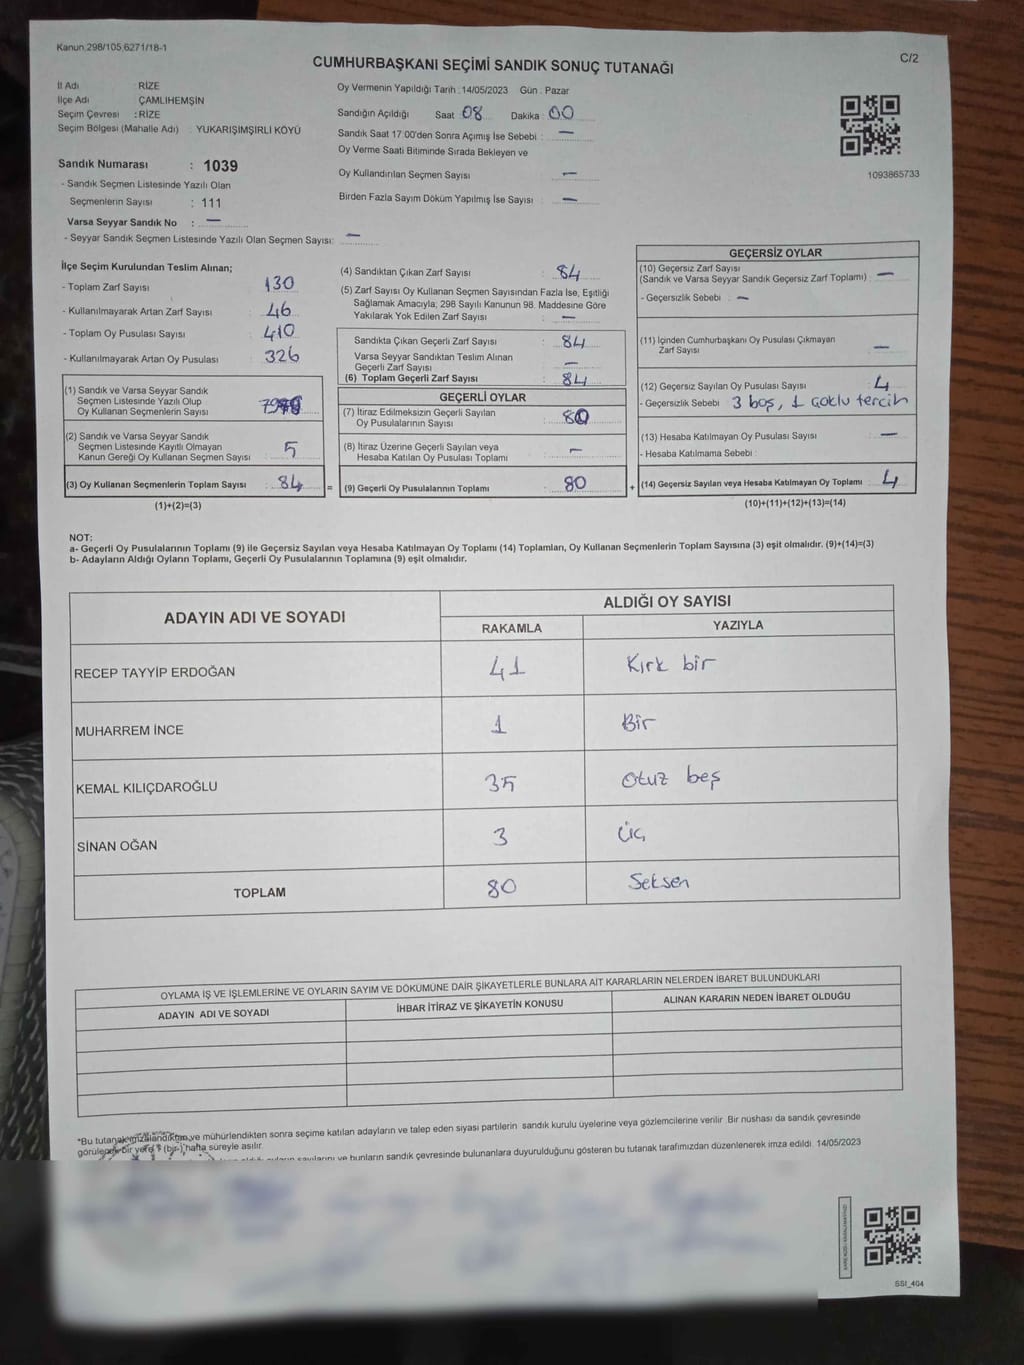 Kanun 298/105,6271/18-1
C/2
CUMHURBAŞKANI SEÇİMİ SANDIK SONUÇ TUTANAĞI
İl Adı : RİZE
İlçe Adı : ÇAMLIHEMŞİN
Seçim Çevresi : RİZE
Seçim Bölgesi (Mahalle Adı) : YUKARIŞIMŞIRLI KÖYÜ
Sandık Numarası : 1039
- Sandık Seçmen Listesinde Yazılı Olan
Seçmenlerin Sayısı : 111
Varsa Seyyar Sandık No : —
- Seyyar Sandık Seçmen Listesinde Yazılı Olan Seçmen Sayısı: —
Oy Vermenin Yapıldığı Tarih : 14/05/2023 Gün : Pazar
Sandığın Açıldığı Saat 08 Dakika : 00
Sandık Saat 17:00'den Sonra Açımış İse Sebebi : —
Oy Verme Saati Bitiminde Sırada Bekleyen ve
Oy Kullandırılan Seçmen Sayısı —
Birden Fazla Sayım Döküm Yapılmış İse Sayısı : —
1093865733
İlçe Seçim Kurulundan Teslim Alınan;
- Toplam Zarf Sayısı : 130
- Kullanılmayarak Artan Zarf Sayısı : 46
- Toplam Oy Pusulası Sayısı : 410
- Kullanılmayarak Artan Oy Pusulası : 326
(1) Sandık ve Varsa Seyyar Sandık
Seçmen Listesinde Yazılı Olup
Oy Kullanan Seçmenlerin Sayısı :
(2) Sandık ve Varsa Seyyar Sandık
Seçmen Listesinde Kayıtlı Olmayan
Kanun Gereği Oy Kullanan Seçmen Sayısı : 5
(3) Oy Kullanan Seçmenlerin Toplam Sayısı : 84 =
(1)+(2)=(3)
(4) Sandıktan Çıkan Zarf Sayısı : 84
(5) Zarf Sayısı Oy Kullanan Seçmen Sayısından Fazla İse, Eşitliği
Sağlamak Amacıyla; 298 Sayılı Kanunun 98. Maddesine Göre
Yakılarak Yok Edilen Zarf Sayısı : —
Sandıkta Çıkan Geçerli Zarf Sayısı : 84
Varsa Seyyar Sandıktan Teslim Alınan
Geçerli Zarf Sayısı : —
(6) Toplam Geçerli Zarf Sayısı : 84
GEÇERLİ OYLAR
(7) İtiraz Edilmeksizin Geçerli Sayılan
Oy Pusulalarının Sayısı : 80
(8) İtiraz Üzerine Geçerli Sayılan veya
Hesaba Katılan Oy Pusulası Toplamı : —
(9) Geçerli Oy Pusulalarının Toplamı : 80 +
GEÇERSİZ OYLAR
(10) Geçersiz Zarf Sayısı
(Sandık ve Varsa Seyyar Sandık Geçersiz Zarf Toplamı) : —
- Geçersizlik Sebebi : —
(11) İçinden Cumhurbaşkanı Oy Pusulası Çıkmayan
Zarf Sayısı : —
(12) Geçersiz Sayılan Oy Pusulası Sayısı : 4
- Geçersizlik Sebebi : 3 boş, 1 çoklu tercih
(13) Hesaba Katılmayan Oy Pusulası Sayısı : —
- Hesaba Katılmama Sebebi :
(14) Geçersiz Sayılan veya Hesaba Katılmayan Oy Toplamı : 4
(10)+(11)+(12)+(13)=(14)
NOT:
a- Geçerli Oy Pusulalarının Toplamı (9) ile Geçersiz Sayılan veya Hesaba Katılmayan Oy Toplamı (14) Toplamları, Oy Kullanan Seçmenlerin Toplam Sayısına (3) eşit olmalıdır. (9)+(14)=(3)
b- Adayların Aldığı Oyların Toplamı, Geçerli Oy Pusulalarının Toplamına (9) eşit olmalıdır.
ADAYIN ADI VE SOYADI ALDIĞI OY SAYISI
RAKAMLA YAZIYLA
RECEP TAYYİP ERDOĞAN 41 Kırk bir
MUHARREM İNCE 1 Bir
KEMAL KILIÇDAROĞLU 35 Otuz beş
SİNAN OĞAN 3 Üç
TOPLAM 80 Seksen
OYLAMA İŞ VE İŞLEMLERİNE VE OYLARIN SAYIM VE DÖKÜMÜNE DAİR ŞİKAYETLERLE BUNLARA AİT KARARLARIN NELERDEN İBARET BULUNDUKLARI
ADAYIN ADI VE SOYADI İHBAR İTİRAZ VE ŞİKAYETİN KONUSU ALINAN KARARIN NEDEN İBARET OLDUĞU
*Bu tutanak imzalandıktan ve mühürlendikten sonra seçime katılan adayların ve talep eden siyasi partilerin sandık kurulu üyelerine veya gözlemcilerine verilir. Bir nüshası da sandık çevresinde
görülecek bir yere 1 (bir) hafta süreyle asılır.
ve bunların sandık çevresinde bulunanlara duyurulduğunu gösteren bu tutanak tarafımızdan düzenlenerek imza edildi. 14/05/2023
SSI_404